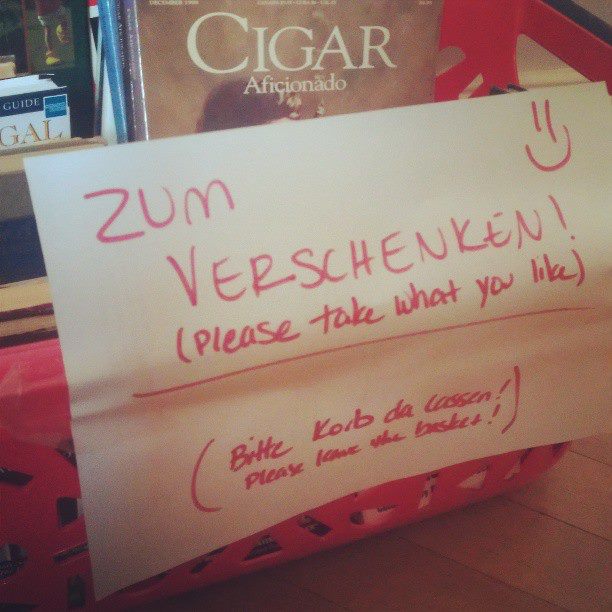 DECEMBER 1998
CIGAR
Aficionado
GUIDE
GAL
ZUM
VERSCHENKEN!
(please take what you like)
(Bitte Korb da lassen!
please leave the basket!)